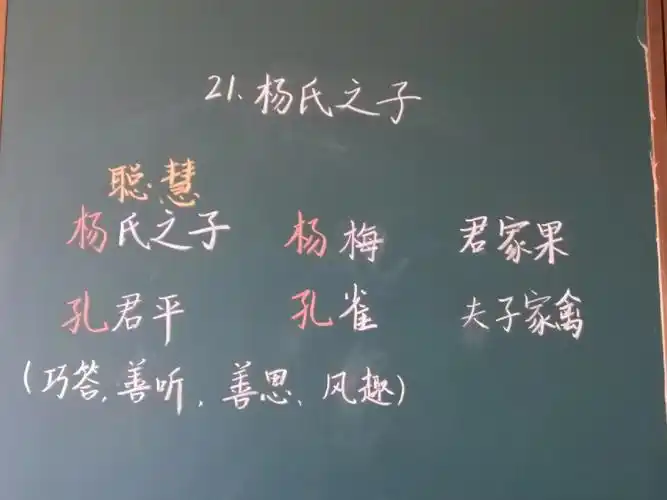 21.杨氏之子
聪慧
杨氏之子 杨梅 君家果
孔君平 孔雀 夫子家禽
(巧答,善听,善思、风趣)